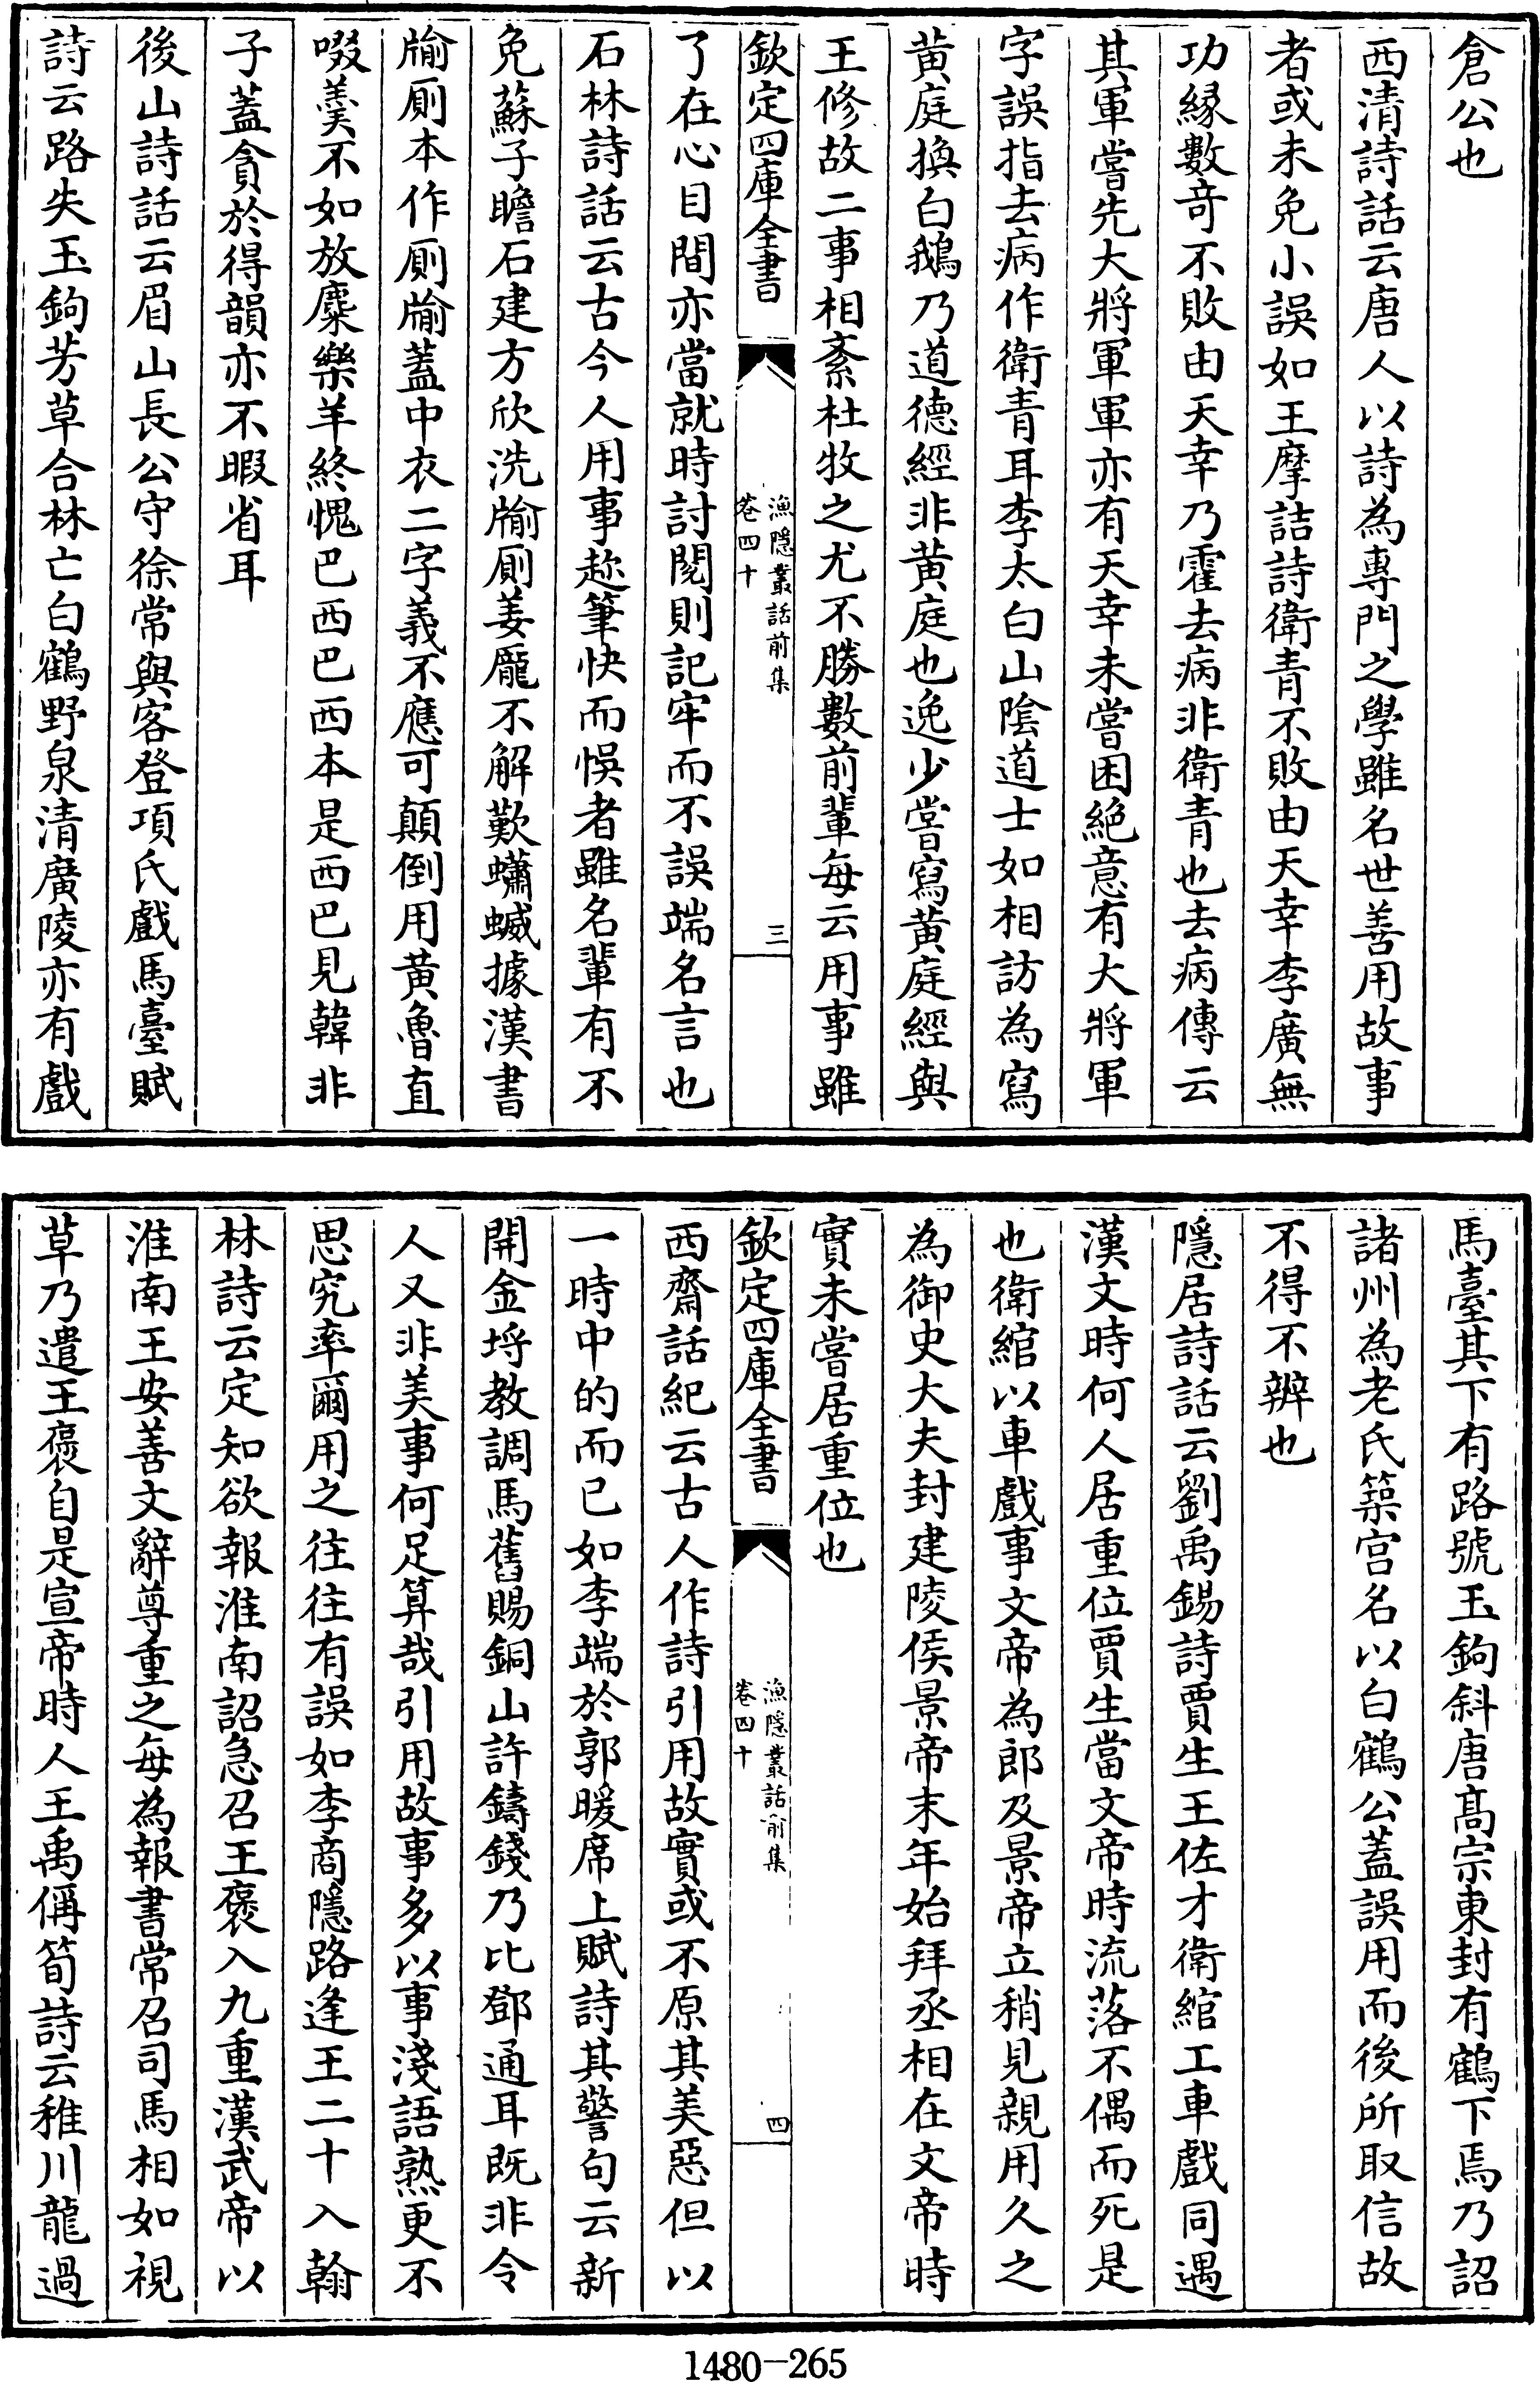 倉公也
西清詩話云唐人以詩為專門之學雖名世善用故事
者或未免小誤如王摩詰詩衛青不敗由天幸李廣無
功緣數奇不敗由天幸乃霍去病非衛青也去病傳云
其軍嘗先大將軍軍亦有天幸未嘗困絕意有大將軍
字誤指去病作衛青耳李太白山陰道士如相訪為寫
黄庭換白鵝乃道德經非黄庭也逸少嘗寫黄庭經與
王修故二事相紊杜牧之尤不勝數前輩每云用事雖
欽定四庫全書
漁隱叢話前集
卷四十
三
了在心目間亦當就時討閱則記牢而不誤端名言也
石林詩話云古今人用事趂筆快而悞者雖名輩有不
免蘇子瞻石建方欣洗牏厠姜龐不解歎蠨蝛據漢書
牏厠本作厠牏蓋中衣二字義不應可顛倒用黄魯直
啜羹不如放麋樂羊終愧巴西巴西本是西巴見韓非
子蓋貪於得韻亦不暇省耳
後山詩話云眉山長公守徐常與客登項氏戲馬臺賦
詩云路失玉鉤芳草合林亡白鶴野泉清廣陵亦有戲
馬臺其下有路號玉鉤斜唐髙宗東封有鶴下焉乃詔
諸州為老氏築宫名以白鶴公蓋誤用而後所取信故
不得不辨也
隱居詩話云劉禹錫詩賈生王佐才衛綰工車戲同遇
漢文時何人居重位賈生當文帝時流落不偶而死是
也衛綰以車戲事文帝為郎及景帝立稍見親用久之
為御史大夫封建陵侯景帝末年始拜丞相在文帝時
實未嘗居重位也
欽定四庫全書
漁隱叢話前集
卷四十
四
西齋話紀云古人作詩引用故實或不原其美惡但以
一時中的而已如李端於郭曖席上賦詩其警句云新
開金埒教調馬舊賜銅山許鑄錢乃比鄧通耳既非令
人又非美事何足算哉引用故事多以事淺語熟更不
思究率爾用之往往有誤如李商隱路逢王二十入翰
林詩云定知欲報淮南詔急召王褒入九重漢武帝以
淮南王安善文辭尊重之每為報書常召司馬相如視
草乃遣王褒自是宣帝時人王禹偁筍詩云稚川龍過
1480—265